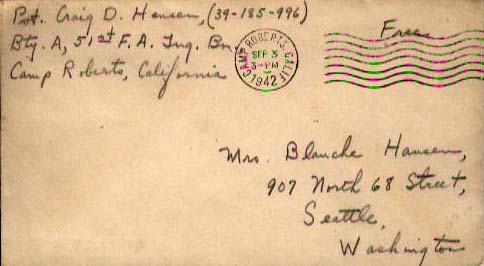 Pvt. Craig D. Hansen, (39-185-996)
Bty. A, 51st F.A. Tng. Bn.,
Camp Roberts, California
CAMP ROBERTS, CALIF.
SEP 3
3-PM
1942
Free
Mrs. Blanche Hansen,
907 North 68 Street,
Seattle,
Washington